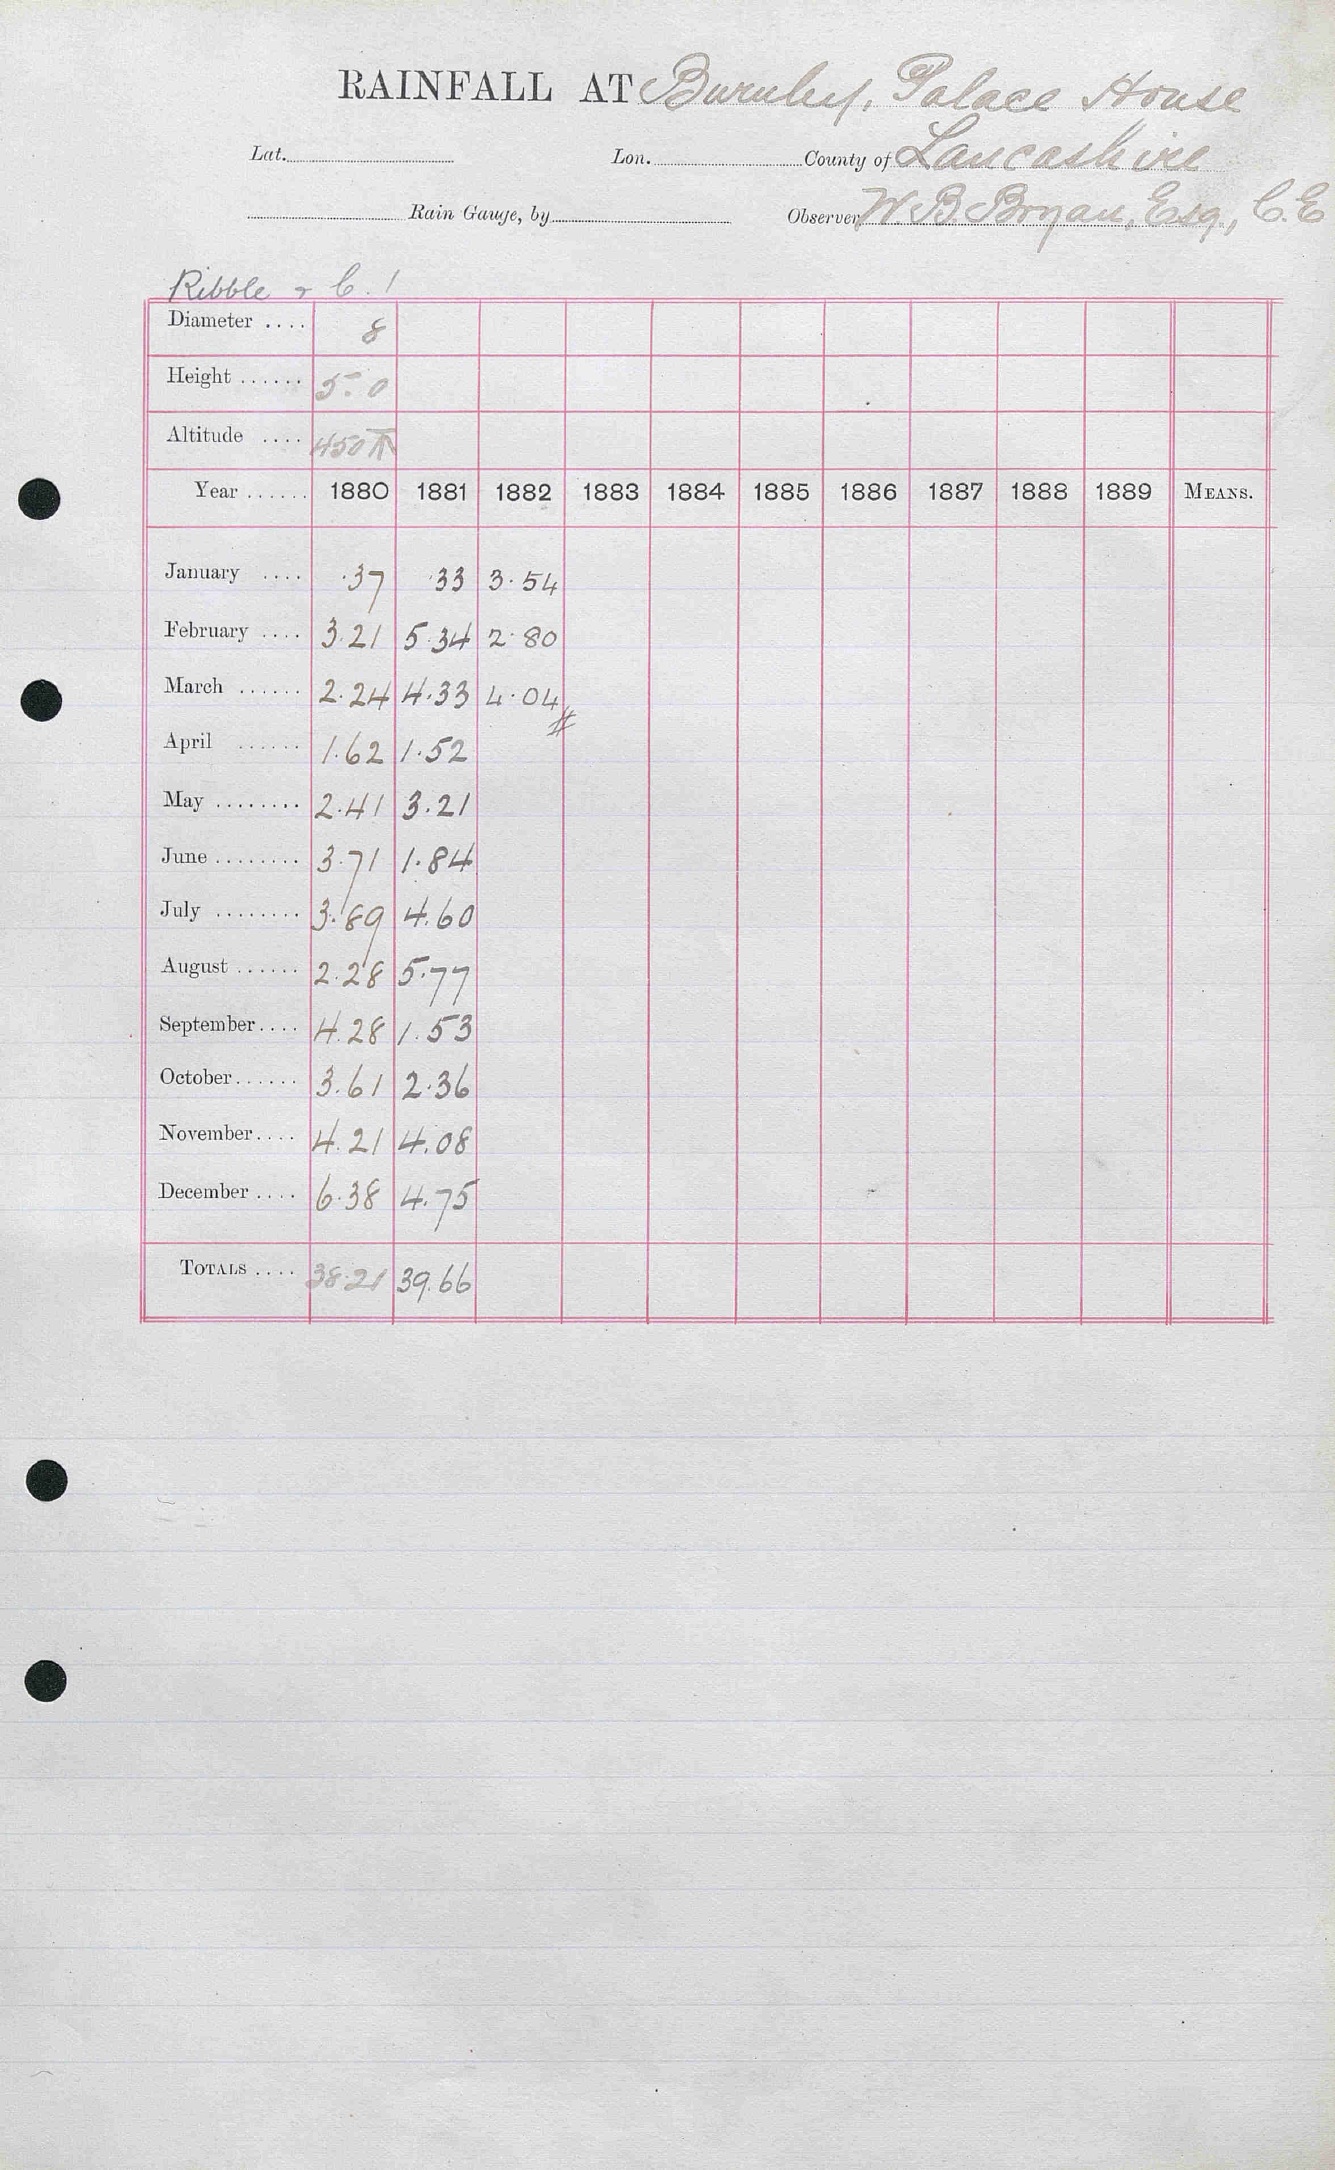 RAINFALL AT Burnley, Palace House
Lat. Lon. County of Lancashire
Rain Gauge, by Observer W. B. Bryan, Esq., C.E
Ribble & C. 1
Diameter .... 8
Height ...... 5.0
Altitude .... 450
Year ...... 1880 1881 1882 1883 1884 1885 1886 1887 1888 1889 MEANS.
January .... .37 .33 3.54
February .... 3.21 5.34 2.80
March ...... 2.24 4.33 4.04
April ...... 1.62 1.52
May ........ 2.41 3.21
June ........ 3.71 1.84
July ........ 3.89 4.60
August ...... 2.28 5.77
September .... 4.28 1.53
October ...... 3.61 2.36
November .... 4.21 4.08
December .... 6.38 4.75
TOTALS .... 38.21 39.66